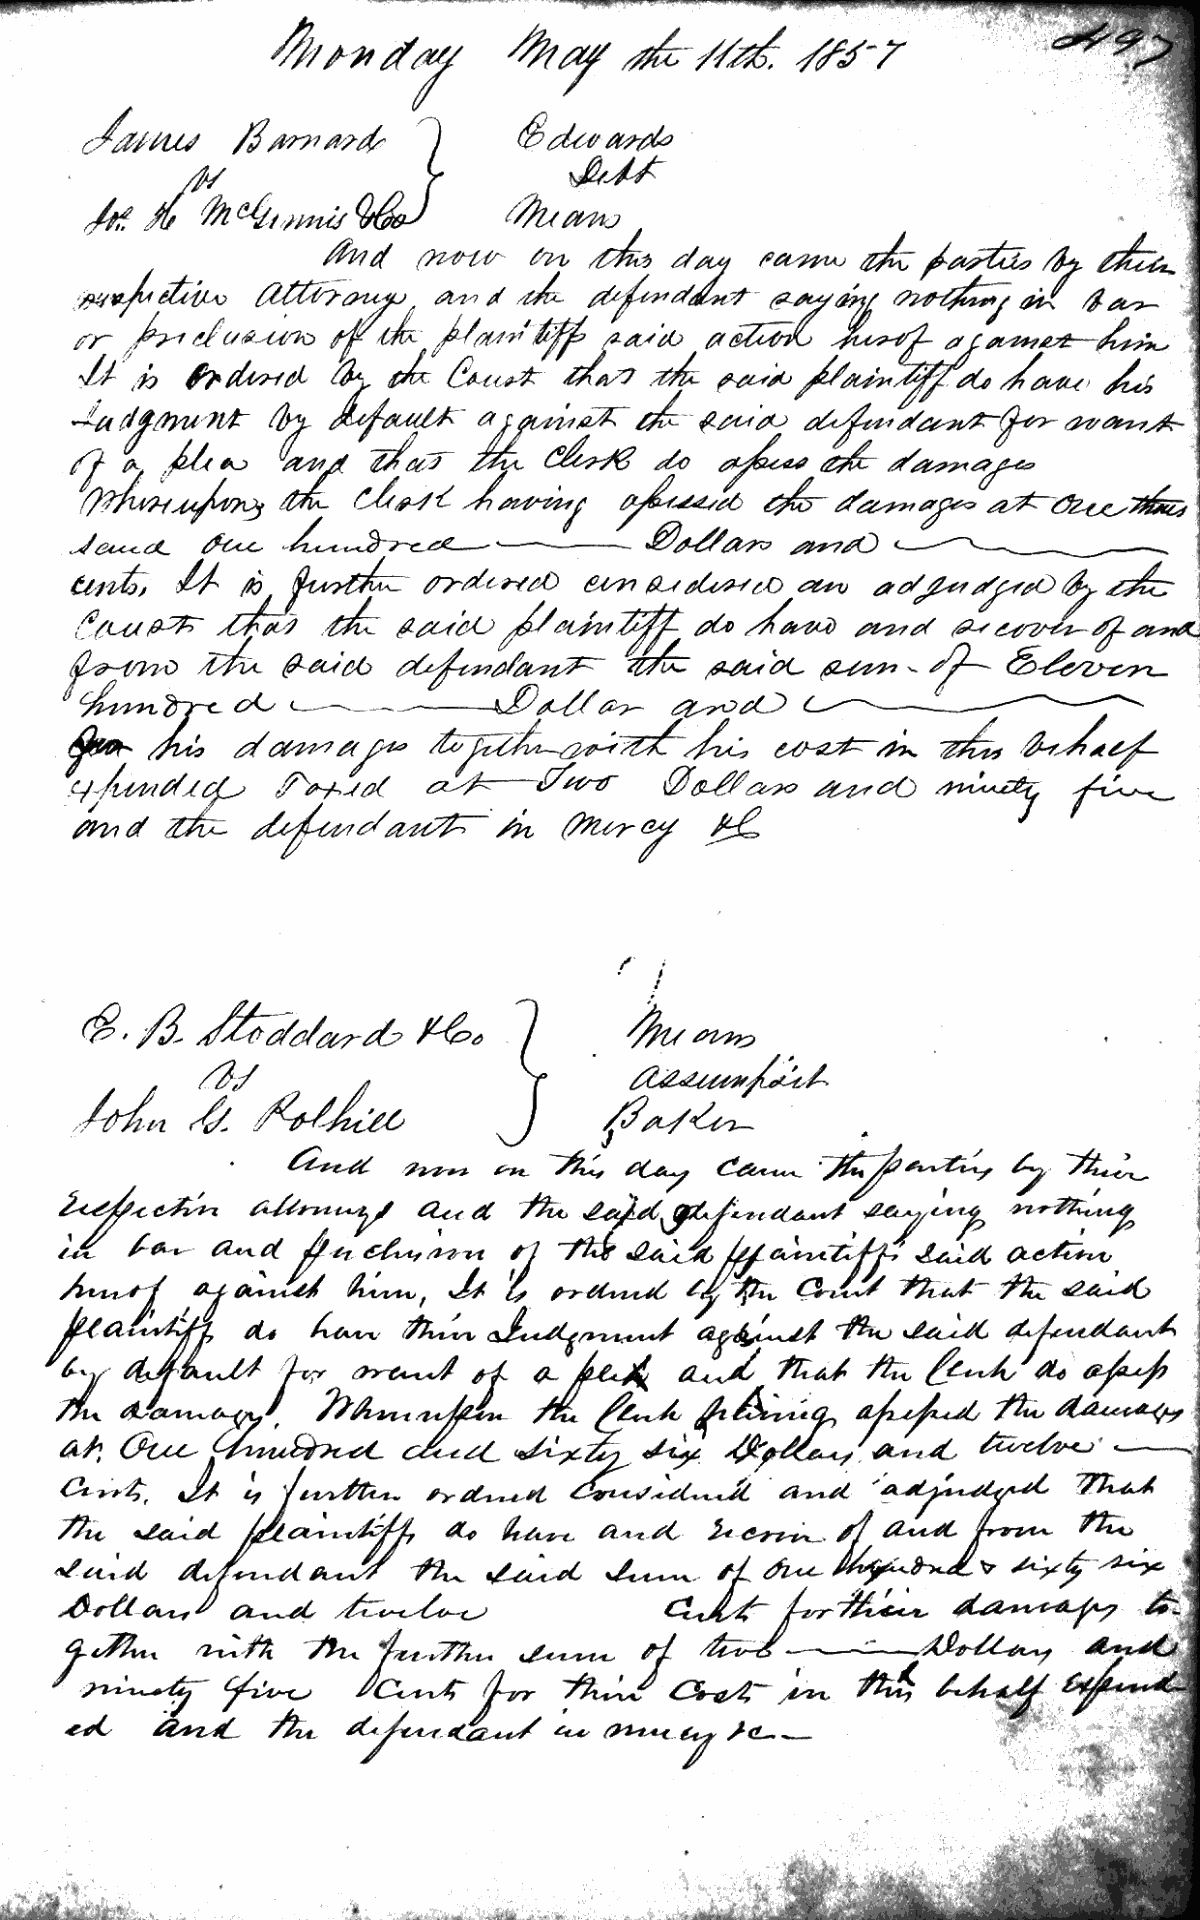 Monday May the 11th. 1857
497
James Barnard } Edwards
vs Debt
Jos. H McGinnis &Co Means
And now on this day came the parties by their
respective Attorneys and the defendant saying nothing in bar
or preclusion of the plaintiffs said action hereof against him
It is ordered by the Court that the said plaintiff do have his
Judgment by default against the said defendant for want
of a plea and that the Clerk do assess the damages
Whereupon the Clerk having assessed the damages at One thou
sand One hundred Dollars and
cents. It is further ordered considered an adjudged by the
Court that the said plaintiff do have and recover of and
from the said defendant the said sum of Eleven
hundred Dollar and
for his damages together with his cost in this behalf
expended Taxed at Two Dollars and ninety five
and the defendant in mercy &C
E. B. Stoddard &Co } Means
vs Assumpsit
John G. Polhill Baker
And now on this day came the parties by their
respective attorneys and the said defendant saying nothing
in bar and preclusion of the said plaintiffs said action
hereof against him, It is ordered by the Court that the said
plaintiffs do have their Judgment against the said defendant
by default for want of a plea and that the Clerk do assess
the damages. Whereupon the Clerk having assessed the damages
at One hundred and sixty six Dollars and twelve
Cents. It is further ordered considered and adjudged that
the said plaintiffs do have and recover of and from the
said defendant the said sum of One hundred & sixty six
Dollars and twelve Cents for their damages to-
gether with the further sum of two Dollars and
ninety five Cents for their Costs in this behalf expend-
ed and the defendant in mercy &c